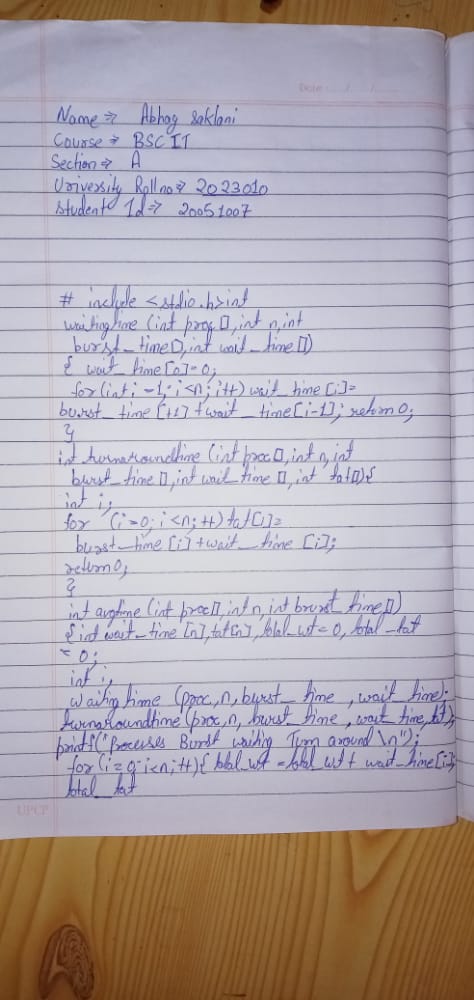 Date : ..../..../....
Name ⇒ Abhay Saklani
Course ⇒ BSC IT
Section ⇒ A
University Roll no ⇒ 2023010
Student Id ⇒ 20051007
# include <stdio.h>int
waitingtime (int proc [], int n, int
burst_time[], int wait_time [])
{ wait_time [0]=0;
for (int i -1; i<n; i++) wait_time [i]=
burst_time [+1] + wait_time [i-1]; return 0;
}
int turnaroundtime (int proc [], int n, int
burst_time [], int wait_time [], int tat[]) {
int i;
for (i=0; i<n; ++) tat[i]=
burst_time [i] + wait_time [i];
return 0;
}
int avgtime (int proc[], int n, int burst_time[])
{ int wait_time [n], tat[n], total_wt = 0, total_tat
= 0;
int i,
Waiting time (proc, n, burst_time, wait_time);
turnaroundtime (proc, n, burst_time, wait_time, tat);
printf("Processes Burst waiting Turn around \n");
for (i=0 i<n; ++) { total_wt = total_wt + wait_time [i];
total_tat
UPCP